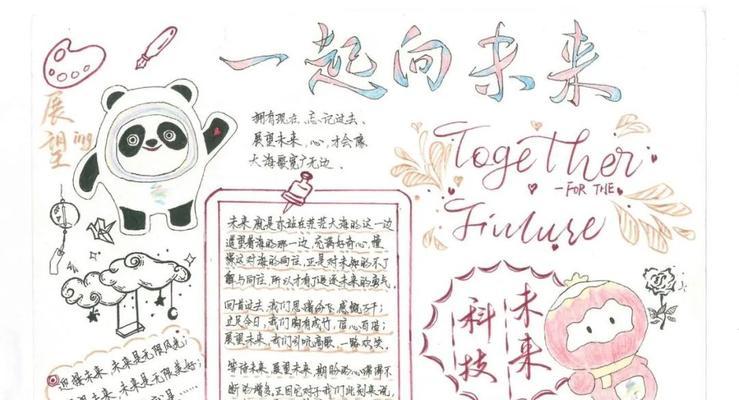 一起向未来
展望ing
拥有现在、忘记过去、
展望未来，心，才会像
大海般宽广无边．
Together
-FOR THE
Future
未来就是亦站在茫茫大海的这一边
遥望着海的那一边，充满好奇心，憧
憬这对海的向往，正是对未知的不了
解与向往，所以才有了追逐未来的勇气
回首过去，我们思绪纷飞感慨万千；
立足今日，我们胸有成竹，信心百倍；
展望未来，我们引吭高歌，一路欢笑。
等待未来，展望未来，期盼的心
不断的增多，正因它对于我们此刻来说，
未来
科技
迎接未来，未来是无限风光；
未来，未来是无限美好；